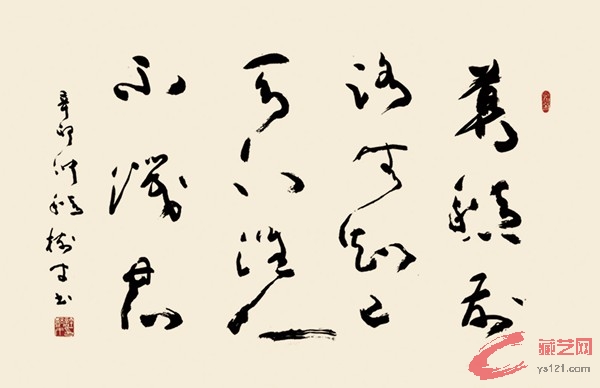 莫愁前
路無知己
天下誰人
不識君
辛卯仲秋樹書
藏艺网
ys121.com